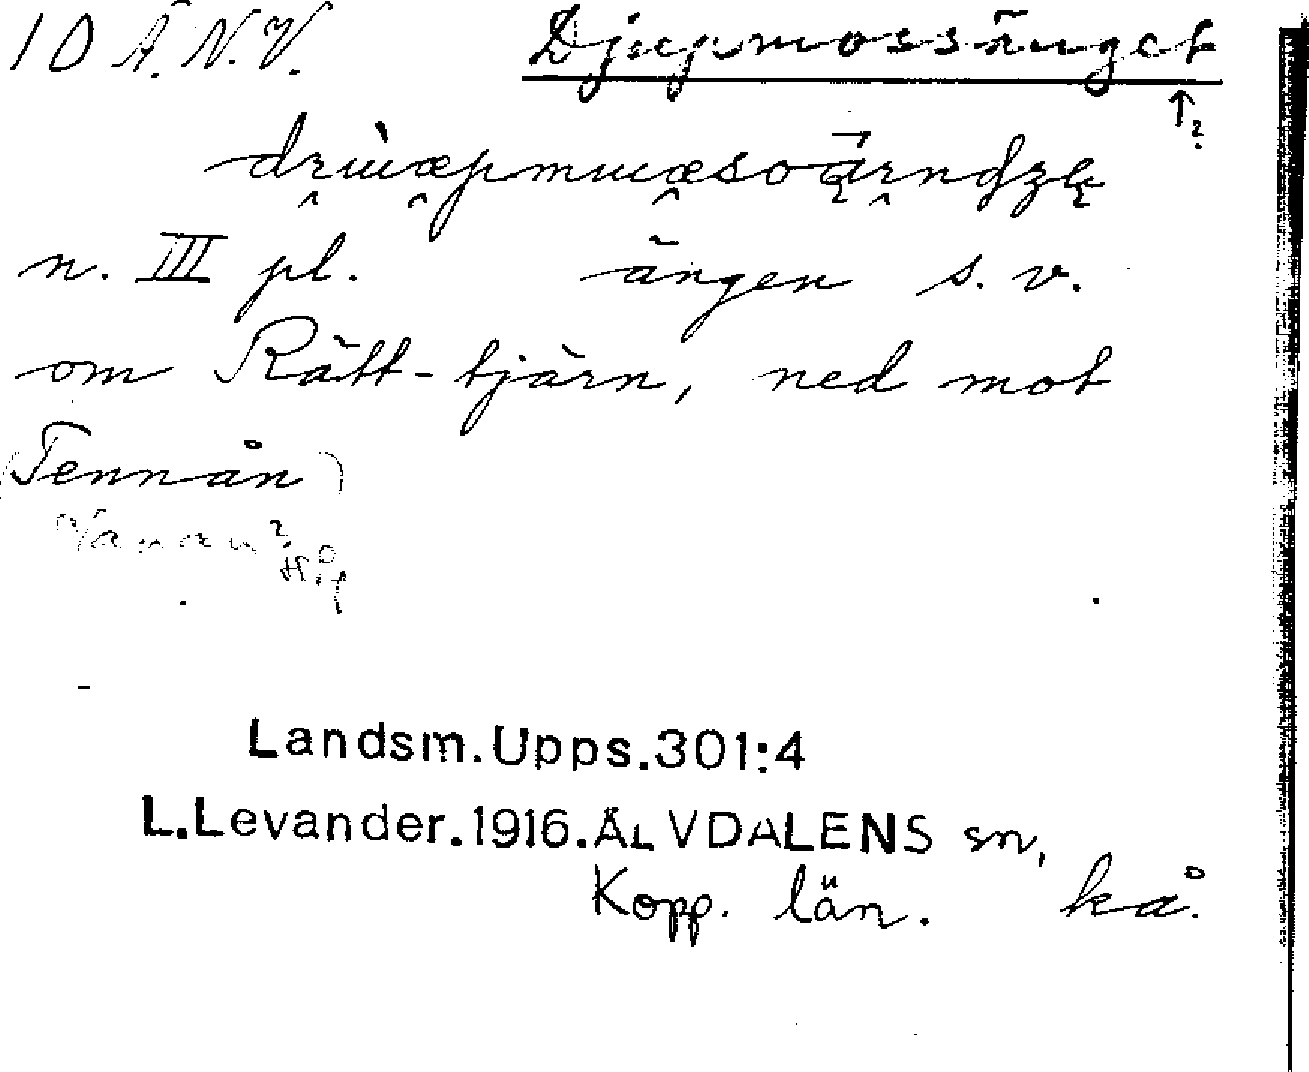 10 Ä.N.V. Djupmossänget
↑?
n. III pl. ängen s. v.
om Rätt-tjärn, ned mot
(Tennån)
Vanån?
Landsm.Upps.301:4
L.Levander.1916.ÄLVDALENS sn,
Kopp. län. kå.